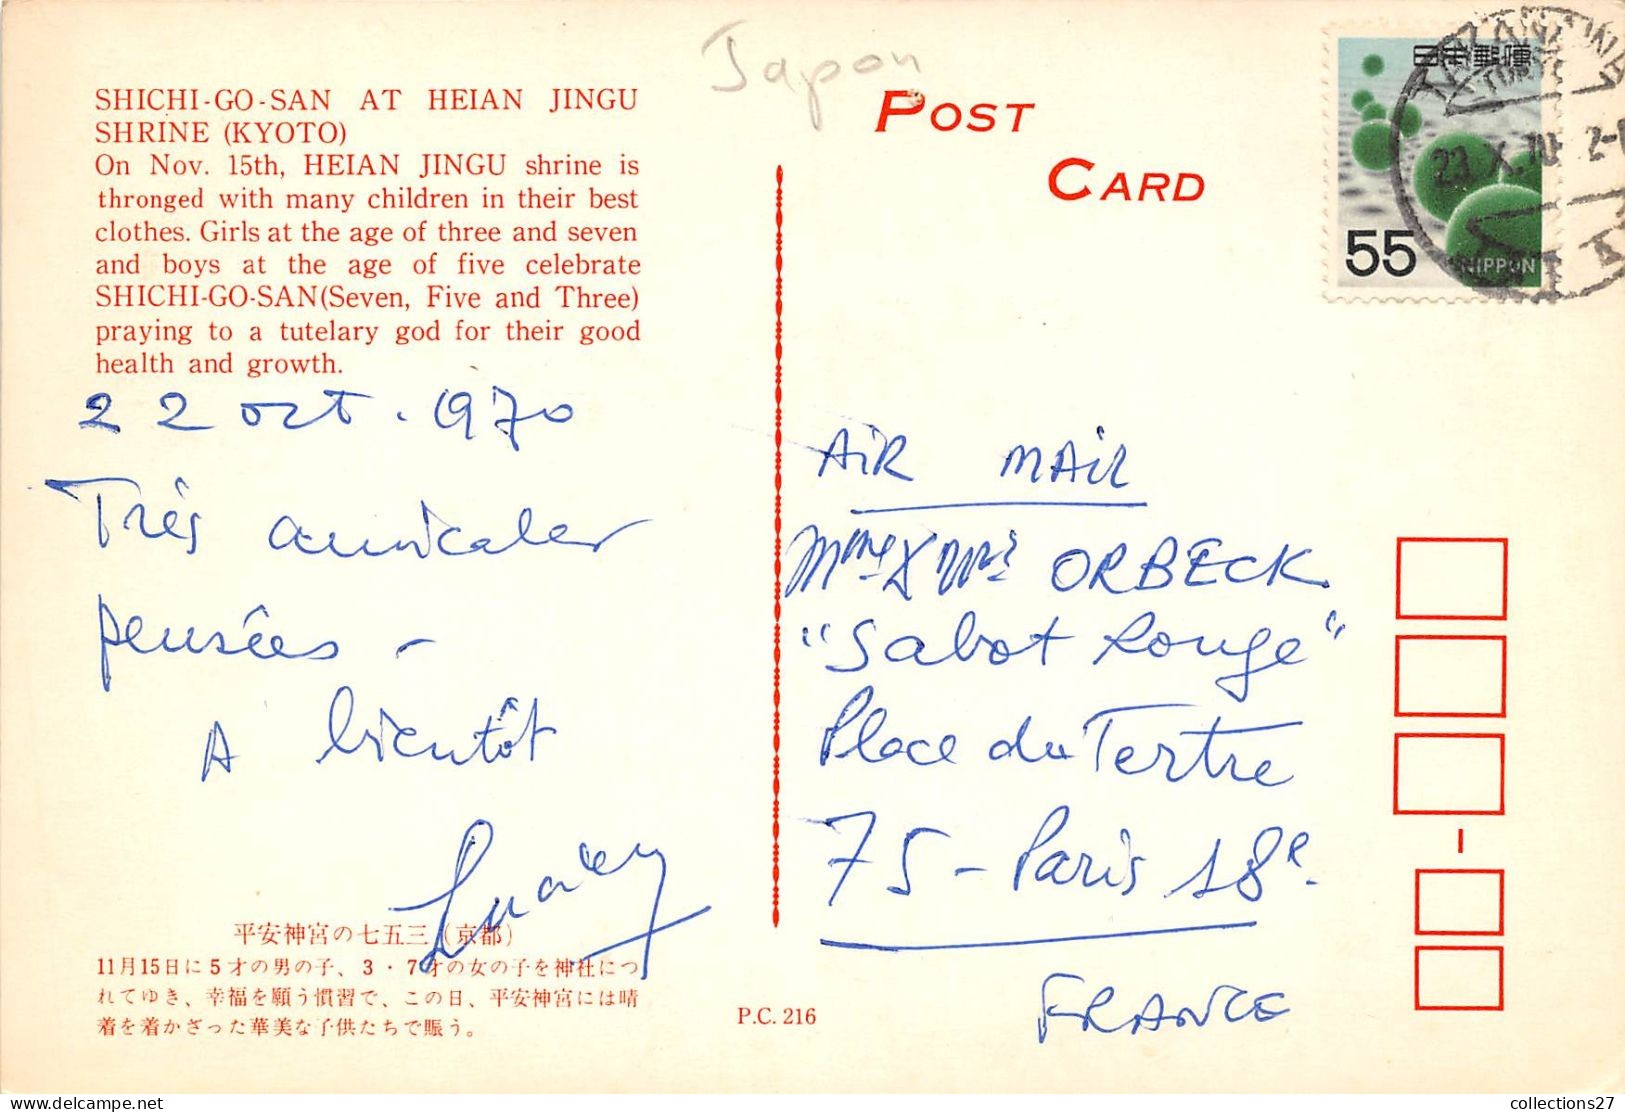 Japon
POST
CARD
SHICHI-GO-SAN AT HEIAN JINGU
SHRINE (KYOTO)
On Nov. 15th, HEIAN JINGU shrine is
thronged with many children in their best
clothes. Girls at the age of three and seven
and boys at the age of five celebrate
SHICHI-GO-SAN(Seven, Five and Three)
praying to a tutelary god for their good
health and growth.
22 oct. 1970
Très amicales
pensées -
A bientôt
平安神宮の七五三(京都)
11月15日に5才の男の子、3・7才の女の子を神社につ
れてゆき、幸福を願う慣習で、この日、平安神宮には晴
着を着かざった華美な子供たちで賑う。
P.C. 216
日本郵便
55
NIPPON
23.X.70
AIR MAIL
Mme & Mr ORBECK
"Sabot Rouge"
Place du Tertre
75 - Paris 18e.
FRANCE
collections27